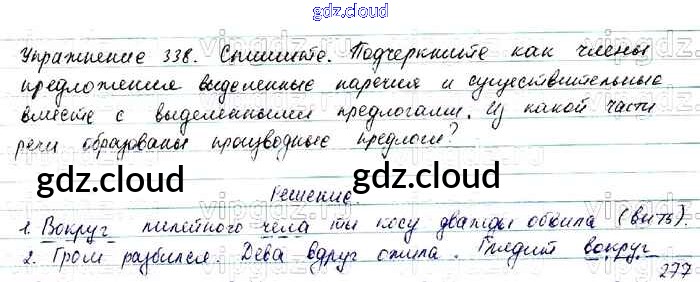 gdz.cloud
Упражнение 338. Спишите. Подчеркните как члены
предложения выделенные наречия и существительные
вместе с выделенными предлогами. Из какой части
речи образованы производные предлоги?
gdz.cloud gdz.cloud
Решение.
1. Вокруг лилейного чела ты косу дважды обвила (вить).
2. Гром разбился. Дева вдруг ожила. Глядит вокруг
277